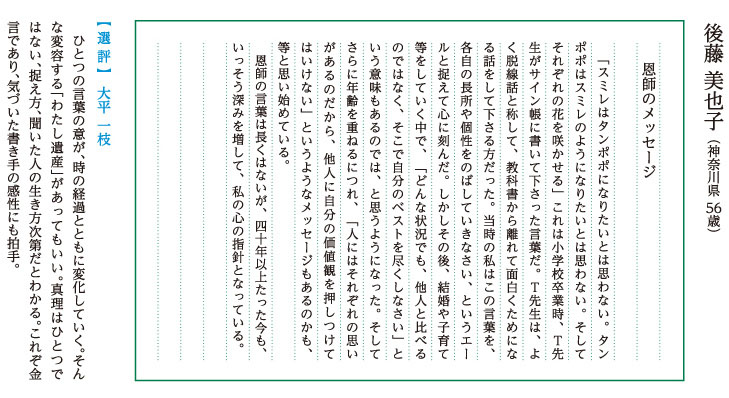 後藤 美也子（神奈川県 56歳）
恩師のメッセージ
「スミレはタンポポになりたいとは思わない。タン
ポポはスミレのようになりたいとは思わない。そして
それぞれの花を咲かせる」これは小学校卒業時、T先
生がサイン帳に書いて下さった言葉だ。T先生は、よ
く脱線話と称して、教科書から離れて面白くためにな
る話をして下さる方だった。当時の私はこの言葉を、
各自の長所や個性をのばしていきなさい、というエー
ルと捉えて心に刻んだ。しかしその後、結婚や子育て
等をしていく中で、「どんな状況でも、他人と比べる
のではなく、そこで自分のベストを尽くしなさい」と
いう意味もあるのでは、と思うようになった。そして
さらに年齢を重ねるにつれ、「人にはそれぞれの思い
があるのだから、他人に自分の価値観を押しつけて
はいけない」というようなメッセージもあるのかも、
等と思い始めている。
恩師の言葉は長くはないが、四十年以上たった今も、
いっそう深みを増して、私の心の指針となっている。
【選評】 大平 一枝
ひとつの言葉の意が、時の経過とともに変化していく。そん
な変容する「わたし遺産」があってもいい。真理はひとつで
はない、捉え方、聞いた人の生き方次第だとわかる。これぞ金
言であり、気づいた書き手の感性にも拍手。